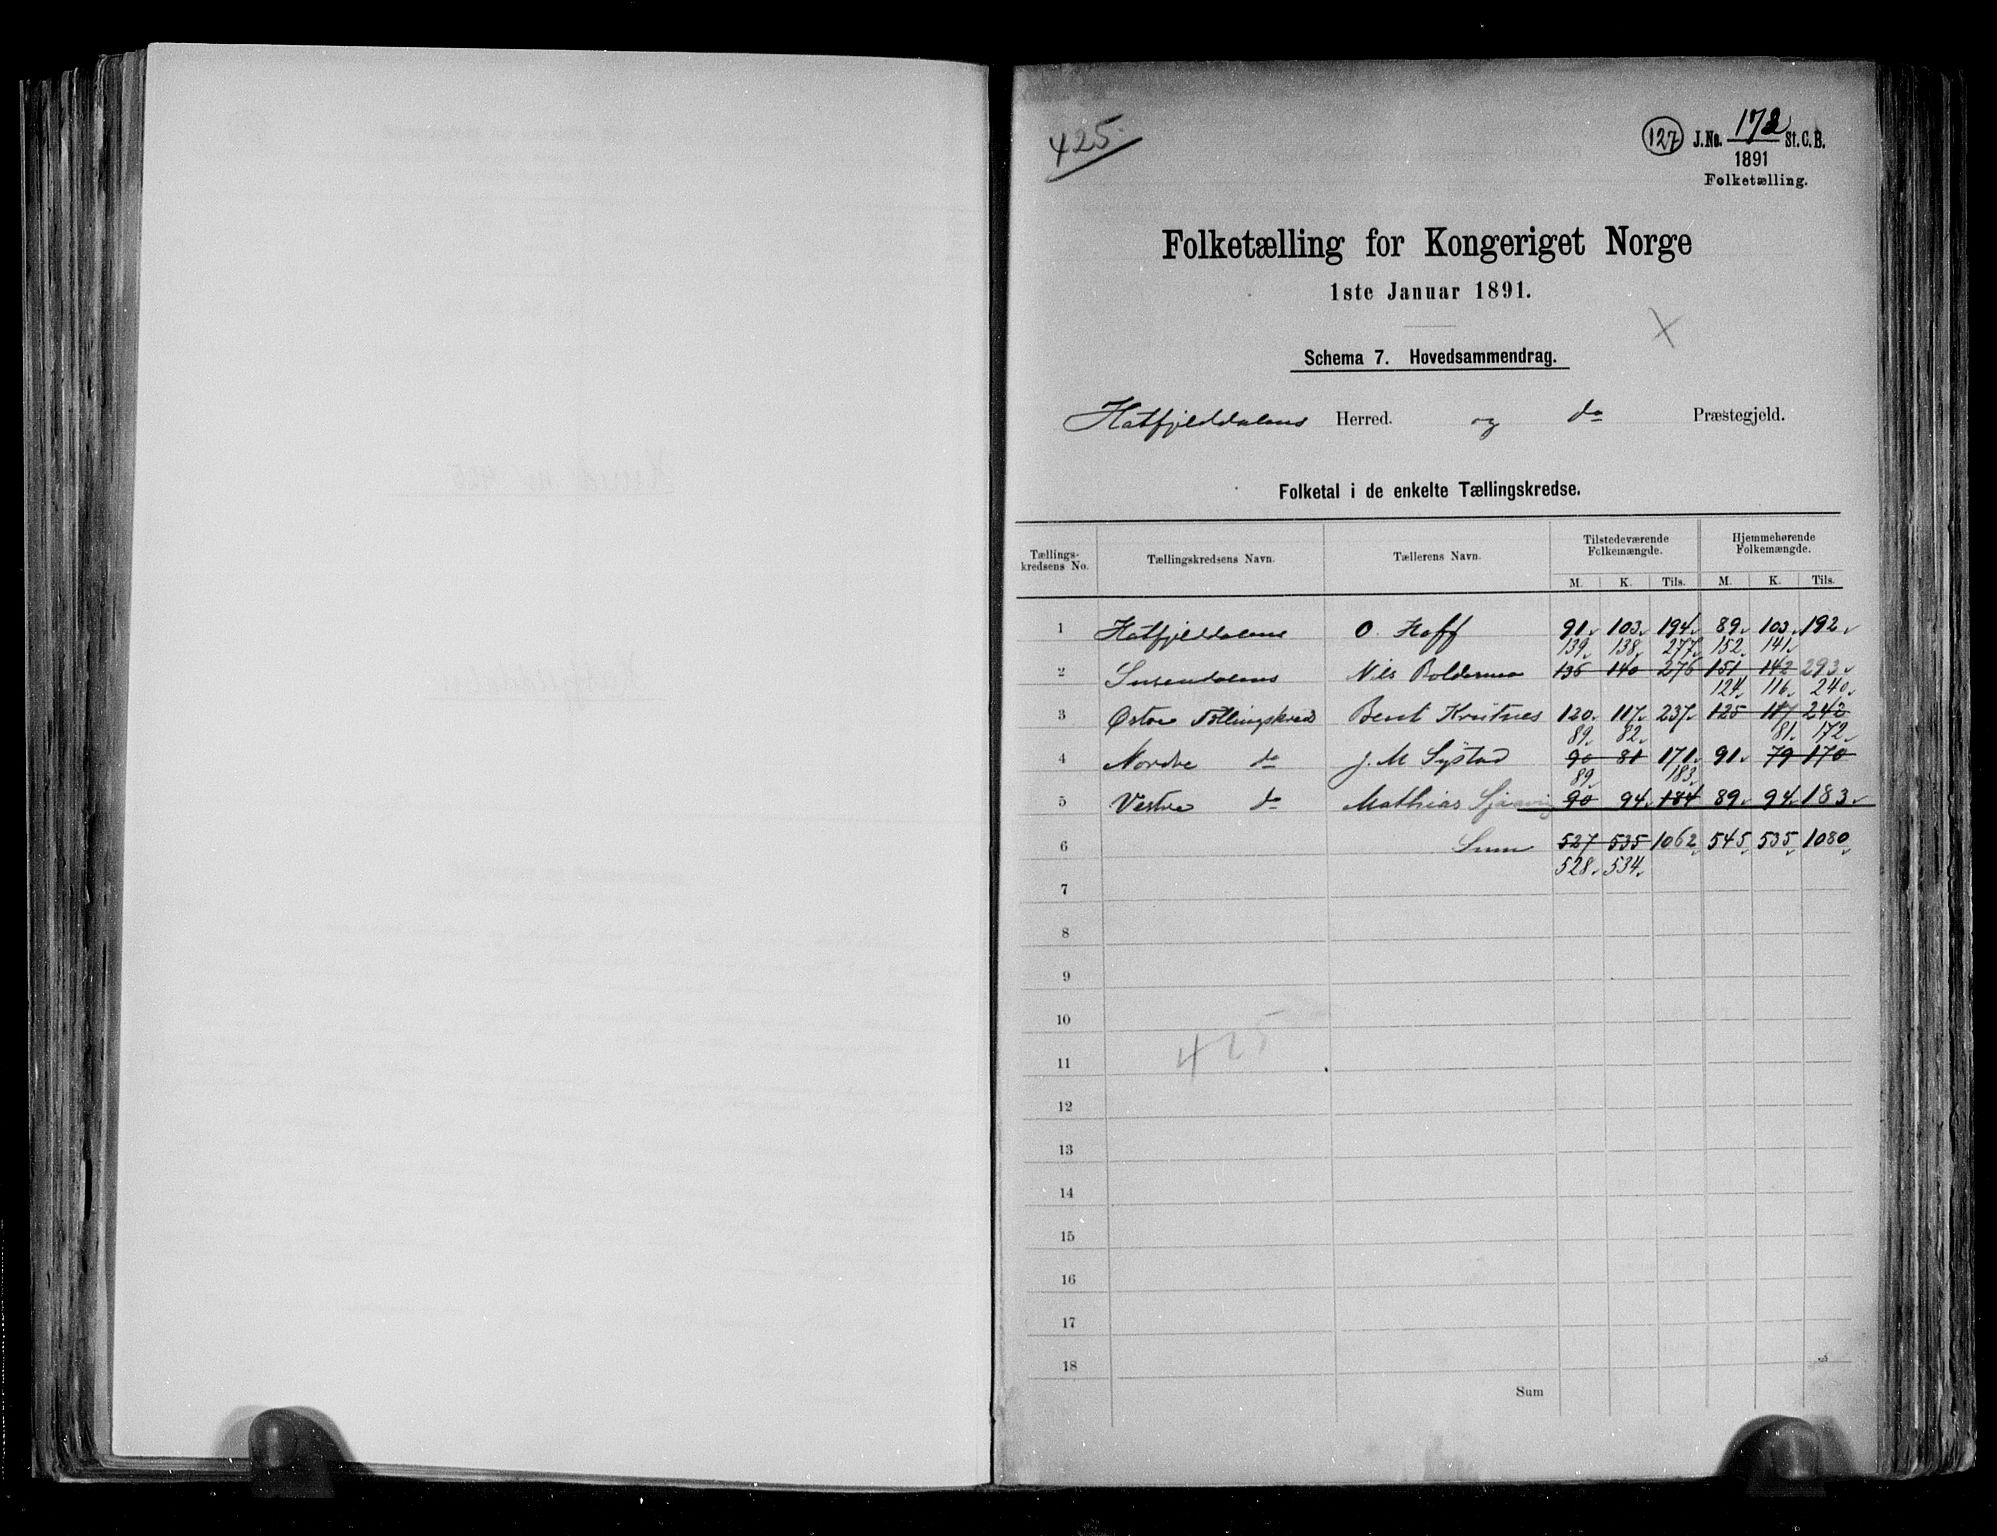 425.
127 J. No. 172 St. C. B.
1891
Folketælling.
Folketælling for Kongeriget Norge
1ste Januar 1891.
Schema 7. Hovedsammendrag.
Hatfjelddalens Herred. og do Præstegjeld.
Folketal i de enkelte Tællingskredse.
Tællings-kredsens No. Tællingskredsens Navn. Tællerens Navn. Tilstedeværende Folkemængde. Hjemmehørende Folkemængde.
M. K. Tils. M. K. Tils.
1 Hatfjelddalens O. Hoff 91 103 194 89 103 192
139 138 277 152 141
2 Susendalens Nils 136 140 276 151 142 293
124 116 240
3 Østre Tællingskreds Bent Krutnes 120 117 237 125 117 242
89 82 81 172
4 Nordre do J. M. Systad 90 81 171 91 79 170
89 183
5 Vestre do Mathias 90 94 184 89 94 183
6 Sum 527 535 1062 545 535 1080
528 534
7
8
9
10
425
11
12
13
14
15
16
17
18
Sum